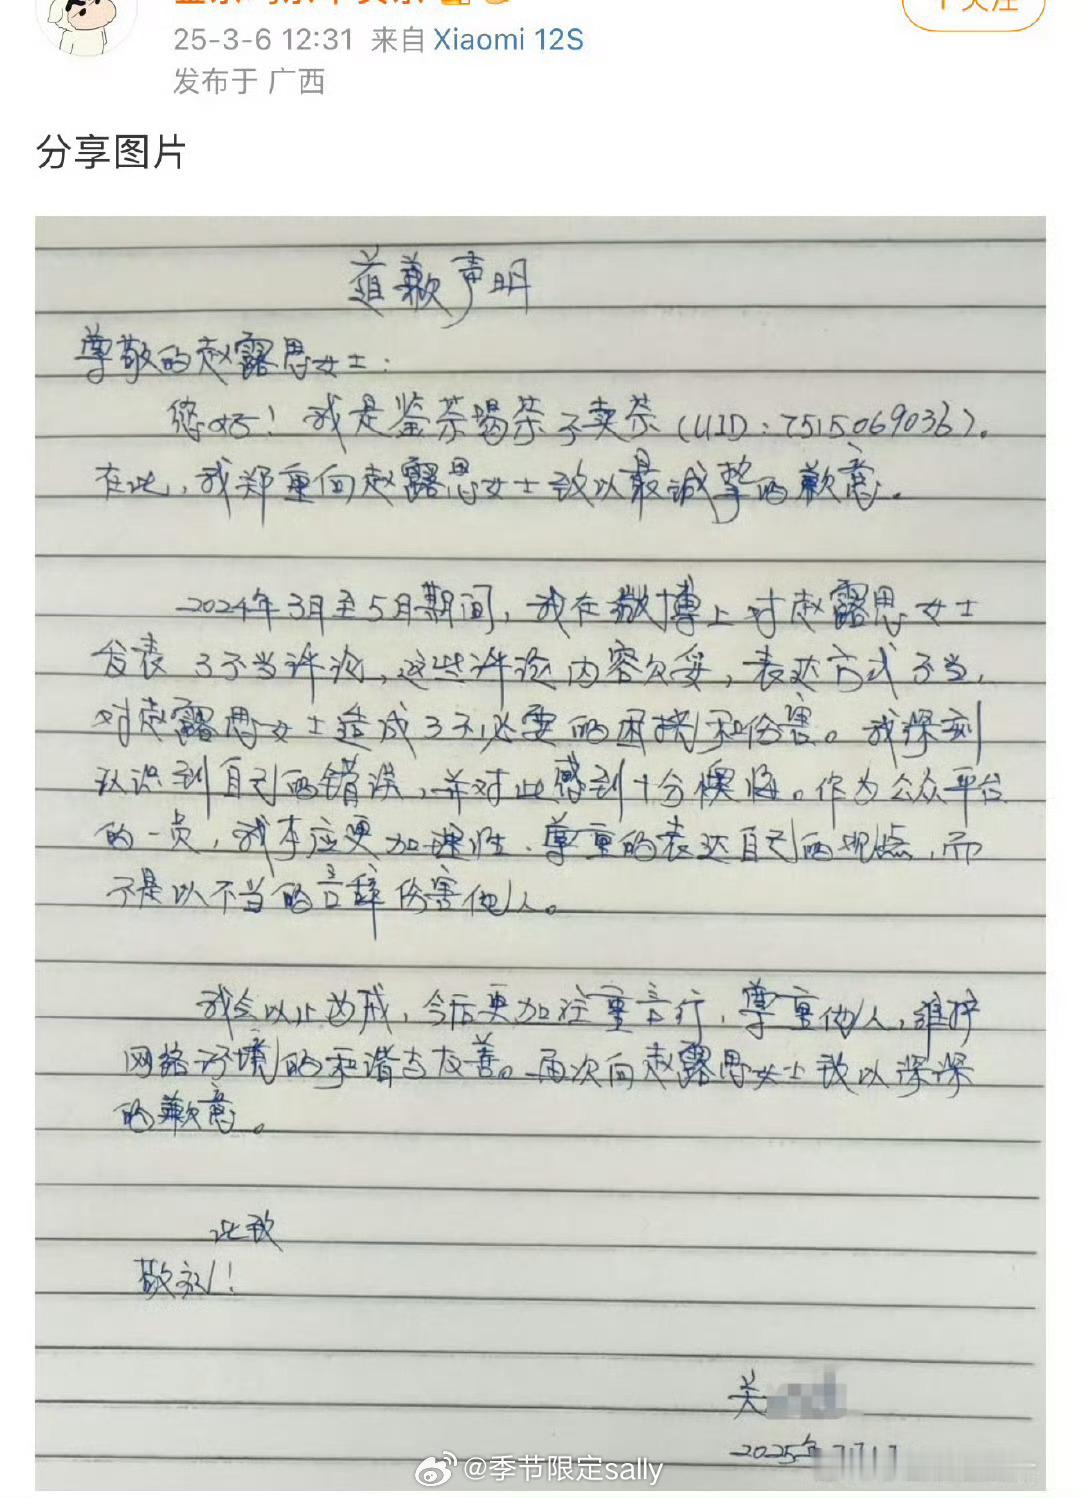 25-3-6 12:31 来自 Xiaomi 12S
发布于 广西
分享图片
道歉声明
尊敬的赵露思女士:
您好!我是鉴茶竭茶子卖茶(UID:7515069036)。
在此,我郑重向赵露思女士致以最诚挚的歉意。
2024年3月至5月期间,我在微博上对赵露思女士
发表了不当评论,这些评论内容欠妥,表达方式不当,
对赵露思女士造成了不必要的困扰和伤害。我深刻
认识到自己的错误,并对此感到十分懊悔。作为公众平台
的一员,我本应更加理性、尊重的表达自己的观点,而
不是以不当的言辞伤害他人。
我会以此为戒,今后更加注重言行,尊重他人,维护
网络环境的和谐与友善。再次向赵露思女士致以深深
的歉意。
此致
敬礼!
关
2025年
@季节限定sally